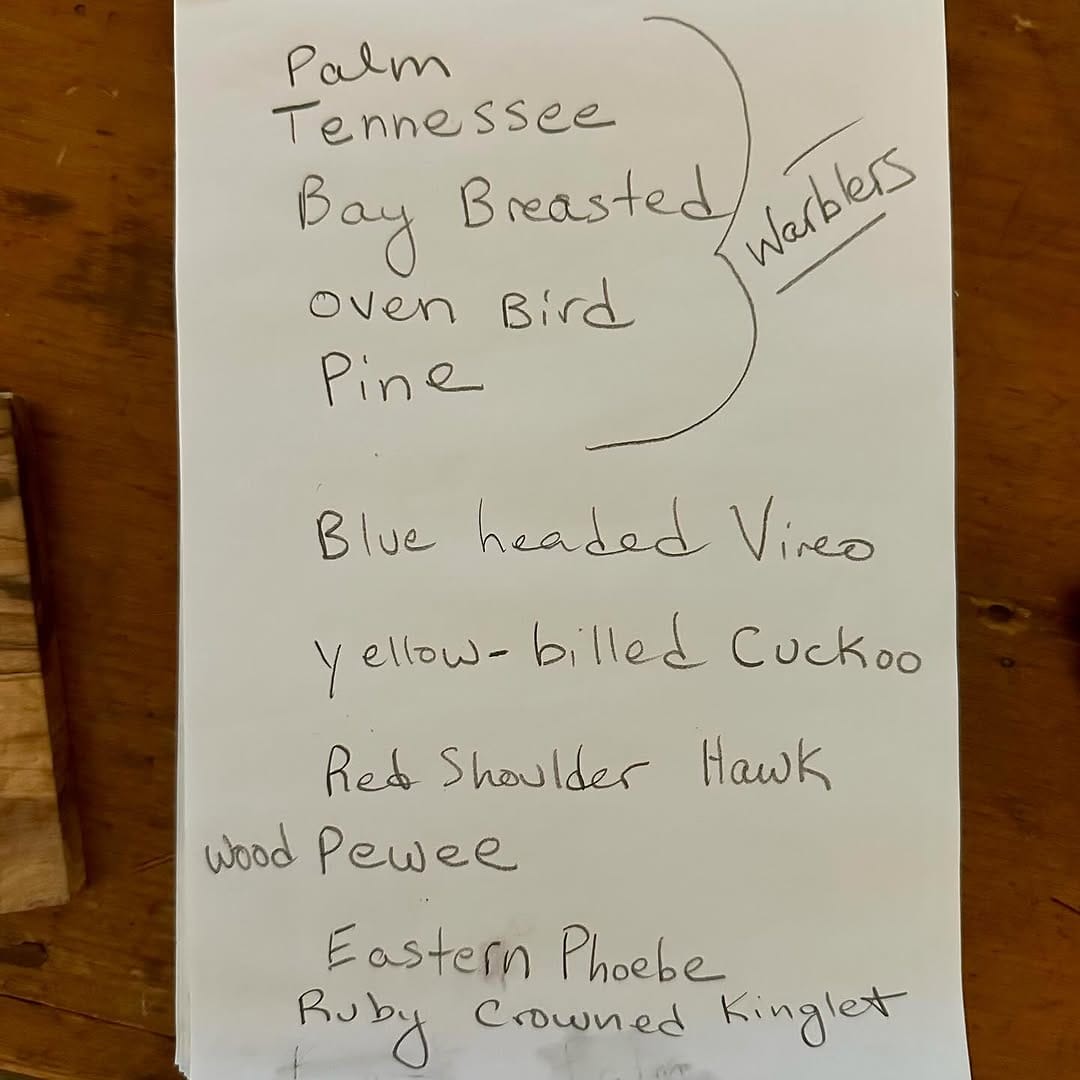 Palm
Tennessee
Bay Breasted
Oven Bird
Pine
Warblers
Blue headed Vireo
Yellow-billed Cuckoo
Red Shoulder Hawk
Wood Pewee
Eastern Phoebe
Ruby Crowned Kinglet